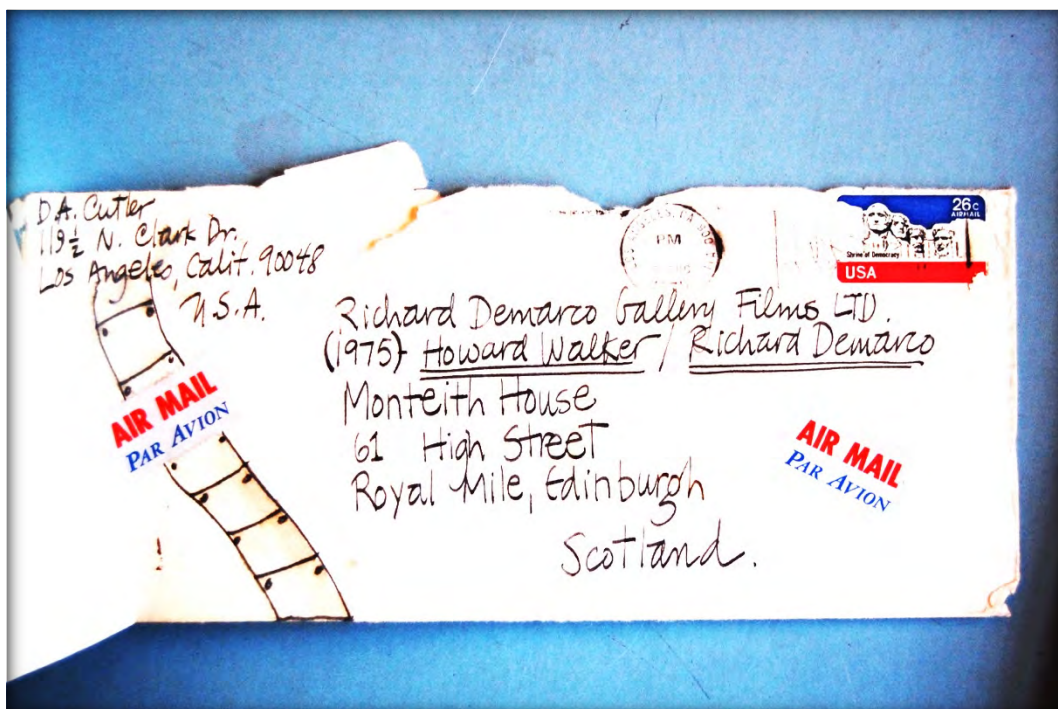 D.A. Cutler
119½ N. Clark Dr.
Los Angeles, Calif. 90048
U.S.A.
PM
26c
AIRMAIL
Shrine of Democracy
USA
Richard Demarco Gallery Films LTD.
(1975) Howard Walker / Richard Demarco
Monteith House
61 High Street
Royal Mile, Edinburgh
Scotland.
AIR MAIL
PAR AVION
AIR MAIL
PAR AVION